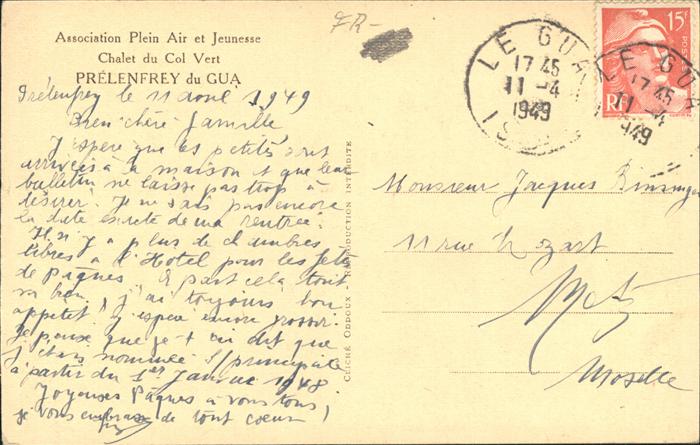 Association Plein Air et Jeunesse
Chalet du Col Vert
PRÉLENFREY du GUA
FR-
Prélenfrey le 11 avril 1949
Bien chère famille
J'espère que les petites sont
arrivées à la maison et que leur
bulletin ne laisse pas trop à
désirer. Je ne sais pas encore
la date exacte de ma rentrée.
Il n'y a plus de chambres
libres à l'Hôtel pour les fêtes
de Pâques. A part cela tout
va bien, j'ai toujours bon
appétit. J'espère encore grossir.
Je pense que je t'ai dit que
j'étais nommée principale
à partir du 1er Janvier 1948
Joyeuses Pâques à vous tous,
je vous embrasse de tout coeur,
CLICHÉ ODDOUX REPRODUCTION INTERDITE
LE GUA
17 45
11 -4
1949
IS
15F
POSTES
RF
LE GUA
17 45
11 -4
1949
Monsieur Jacques
11 rue Mozart
Metz
Moselle